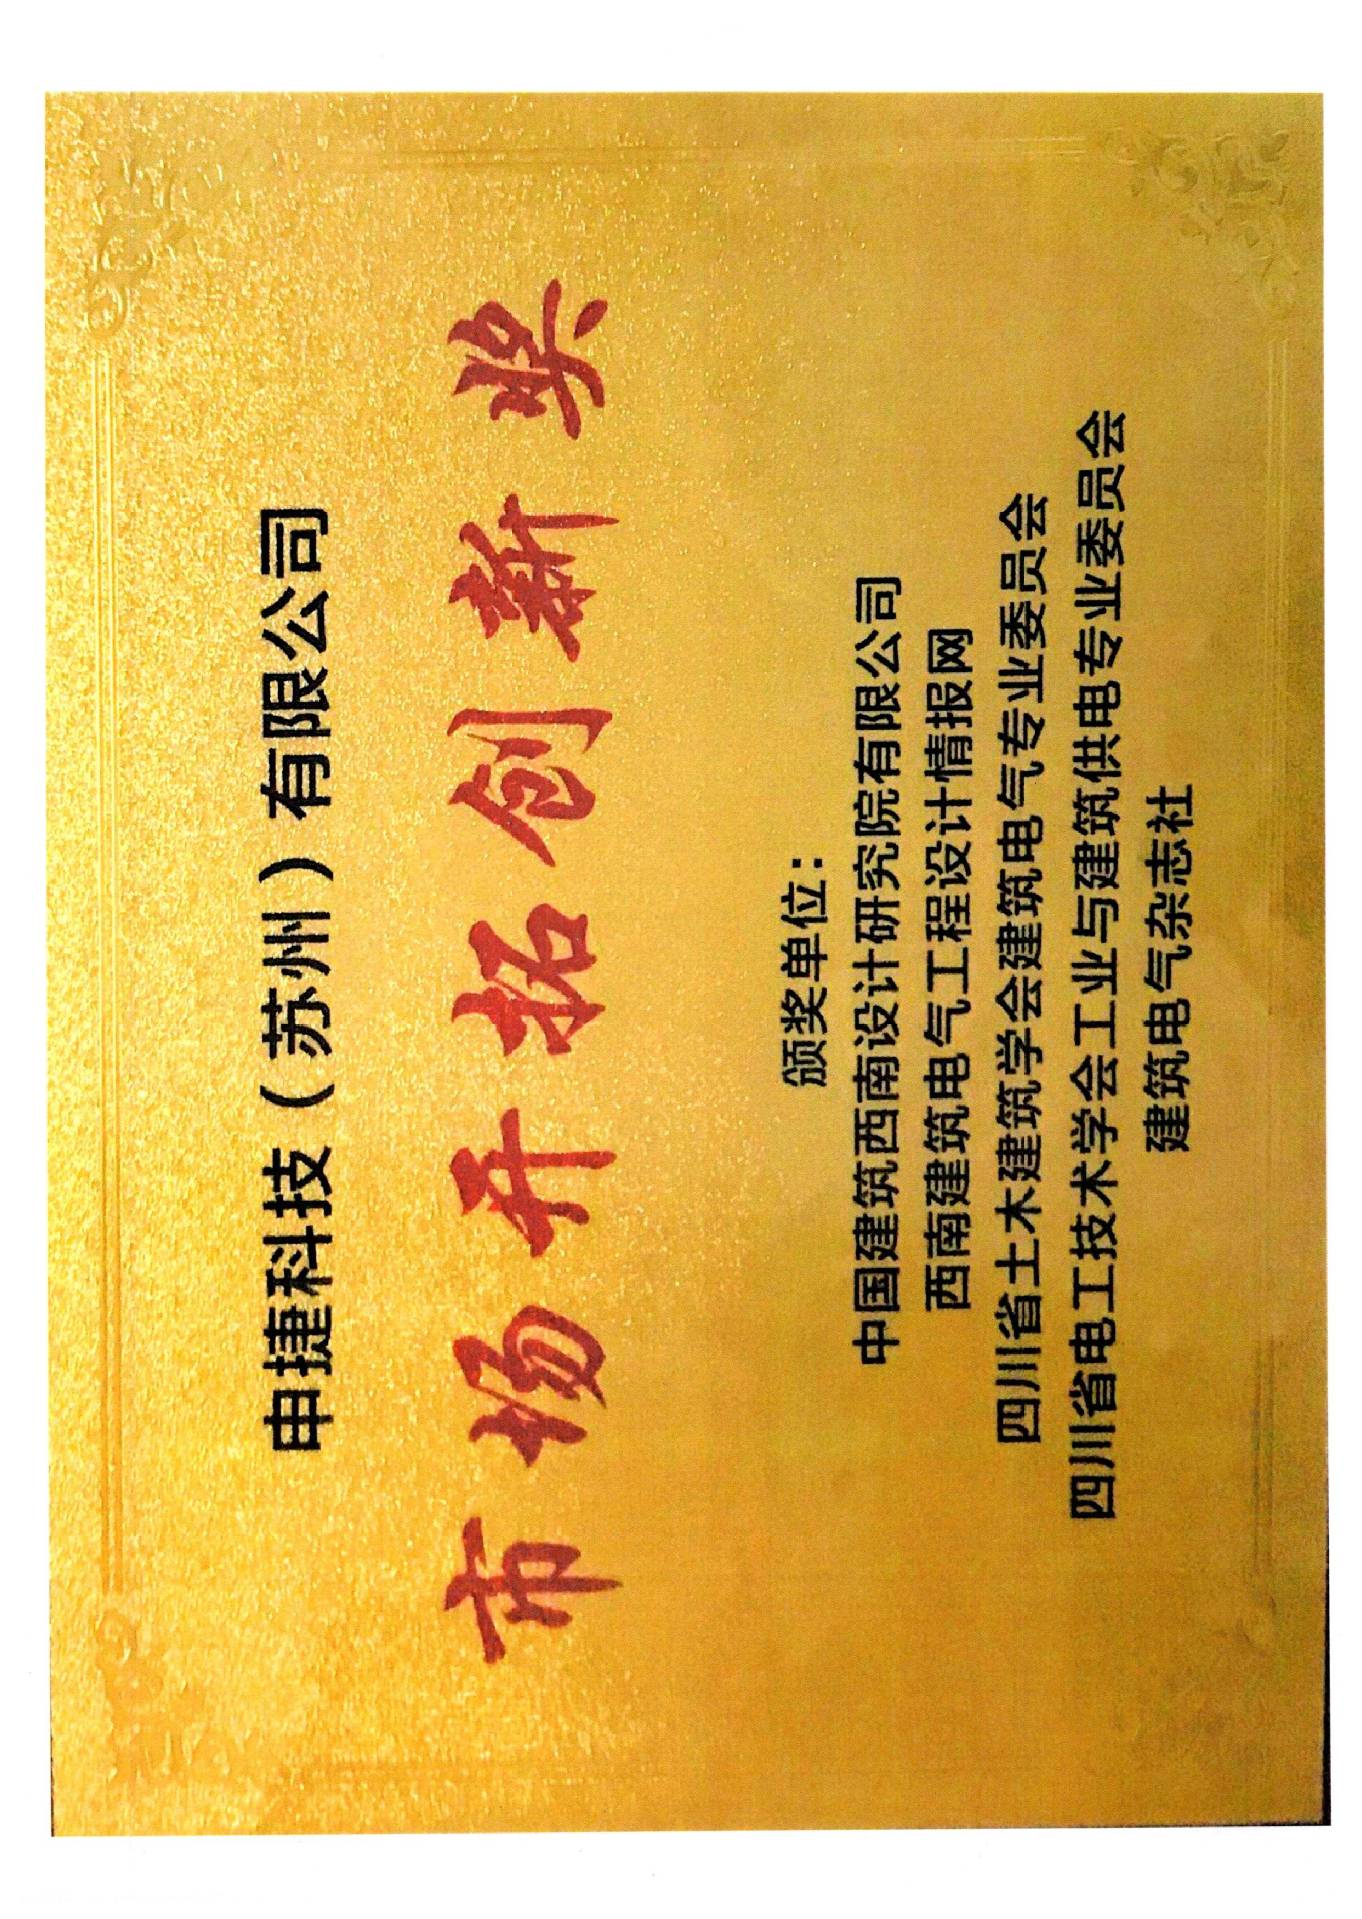 申捷科技（苏州）有限公司
市场开拓创新奖
颁奖单位：
中国建筑西南设计研究院有限公司
西南建筑电气工程设计情报网
四川省土木建筑学会建筑电气专业委员会
四川省电工技术学会工业与建筑供电专业委员会
建筑电气杂志社